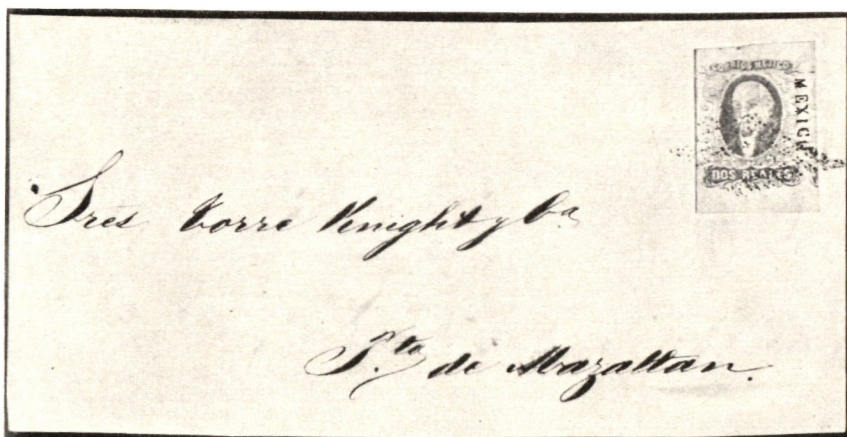 CORREOS MEJICO
MEXICO
DOS REALES
Sres Torre Knight y Ca
Pto de Mazatlan.